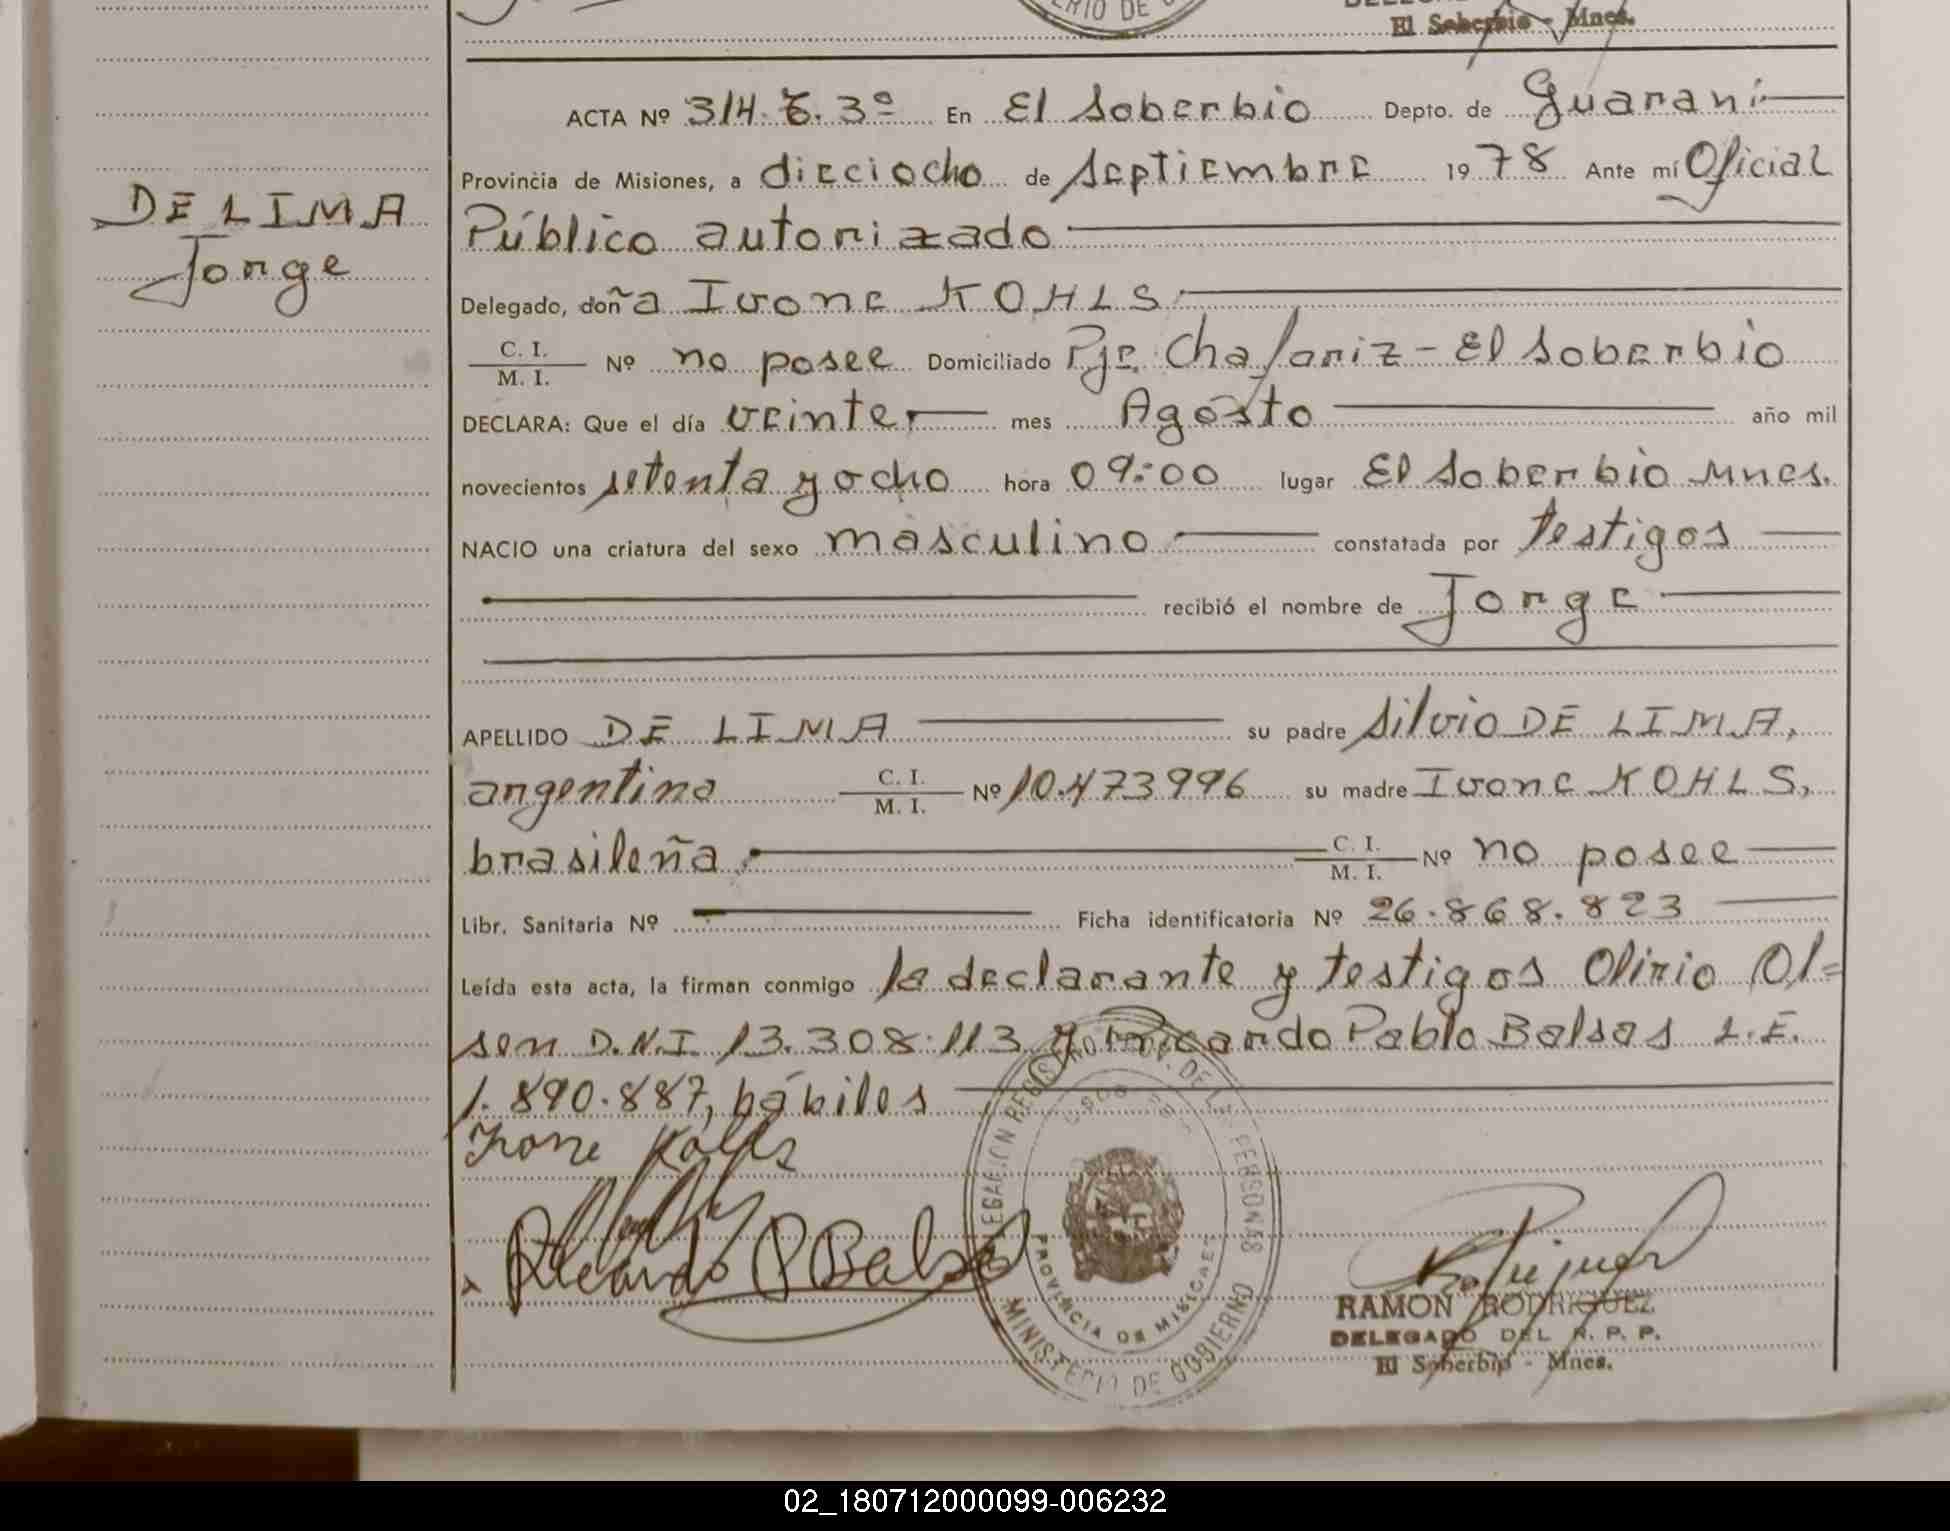 El Soberbio - Mnes.
ACTA Nº 314. T. 3º En El Soberbio Depto. de Guaraní
Provincia de Misiones, a dieciocho de Septiembre 1978 Ante mí Oficial
Público autorizado
DE LIMA
Jorge
Delegado, doña Ivone KOHLS
C. I.
M. I. Nº no posee Domiciliado Pje. Chafariz - El Soberbio
DECLARA: Que el día veinte mes Agosto año mil
novecientos setenta y ocho hora 09:00 lugar El Soberbio Mnes.
NACIO una criatura del sexo masculino constatada por testigos
recibió el nombre de Jorge
APELLIDO DE LIMA su padre Silvio DE LIMA,
argentino C. I.
M. I. Nº 10.473996 su madre Ivone KOHLS,
brasileña C. I.
M. I. Nº no posee
Libr. Sanitaria Nº Ficha identificatoria Nº 26.868.823
Leída esta acta, la firman conmigo la declarante y testigos Olirio Ol=
sen D.N.I 13.308.113 y Ricardo Pablo Balsas L.E.
1.890.887, hábiles
Ivone Kolls
Ricardo P Balsas
PROVINCIA DE MISIONES
MINISTERIO DE GOBIERNO
RAMON RODRIGUEZ
DELEGADO DEL R. P. P.
El Soberbio - Mnes.
02_180712000099-006232